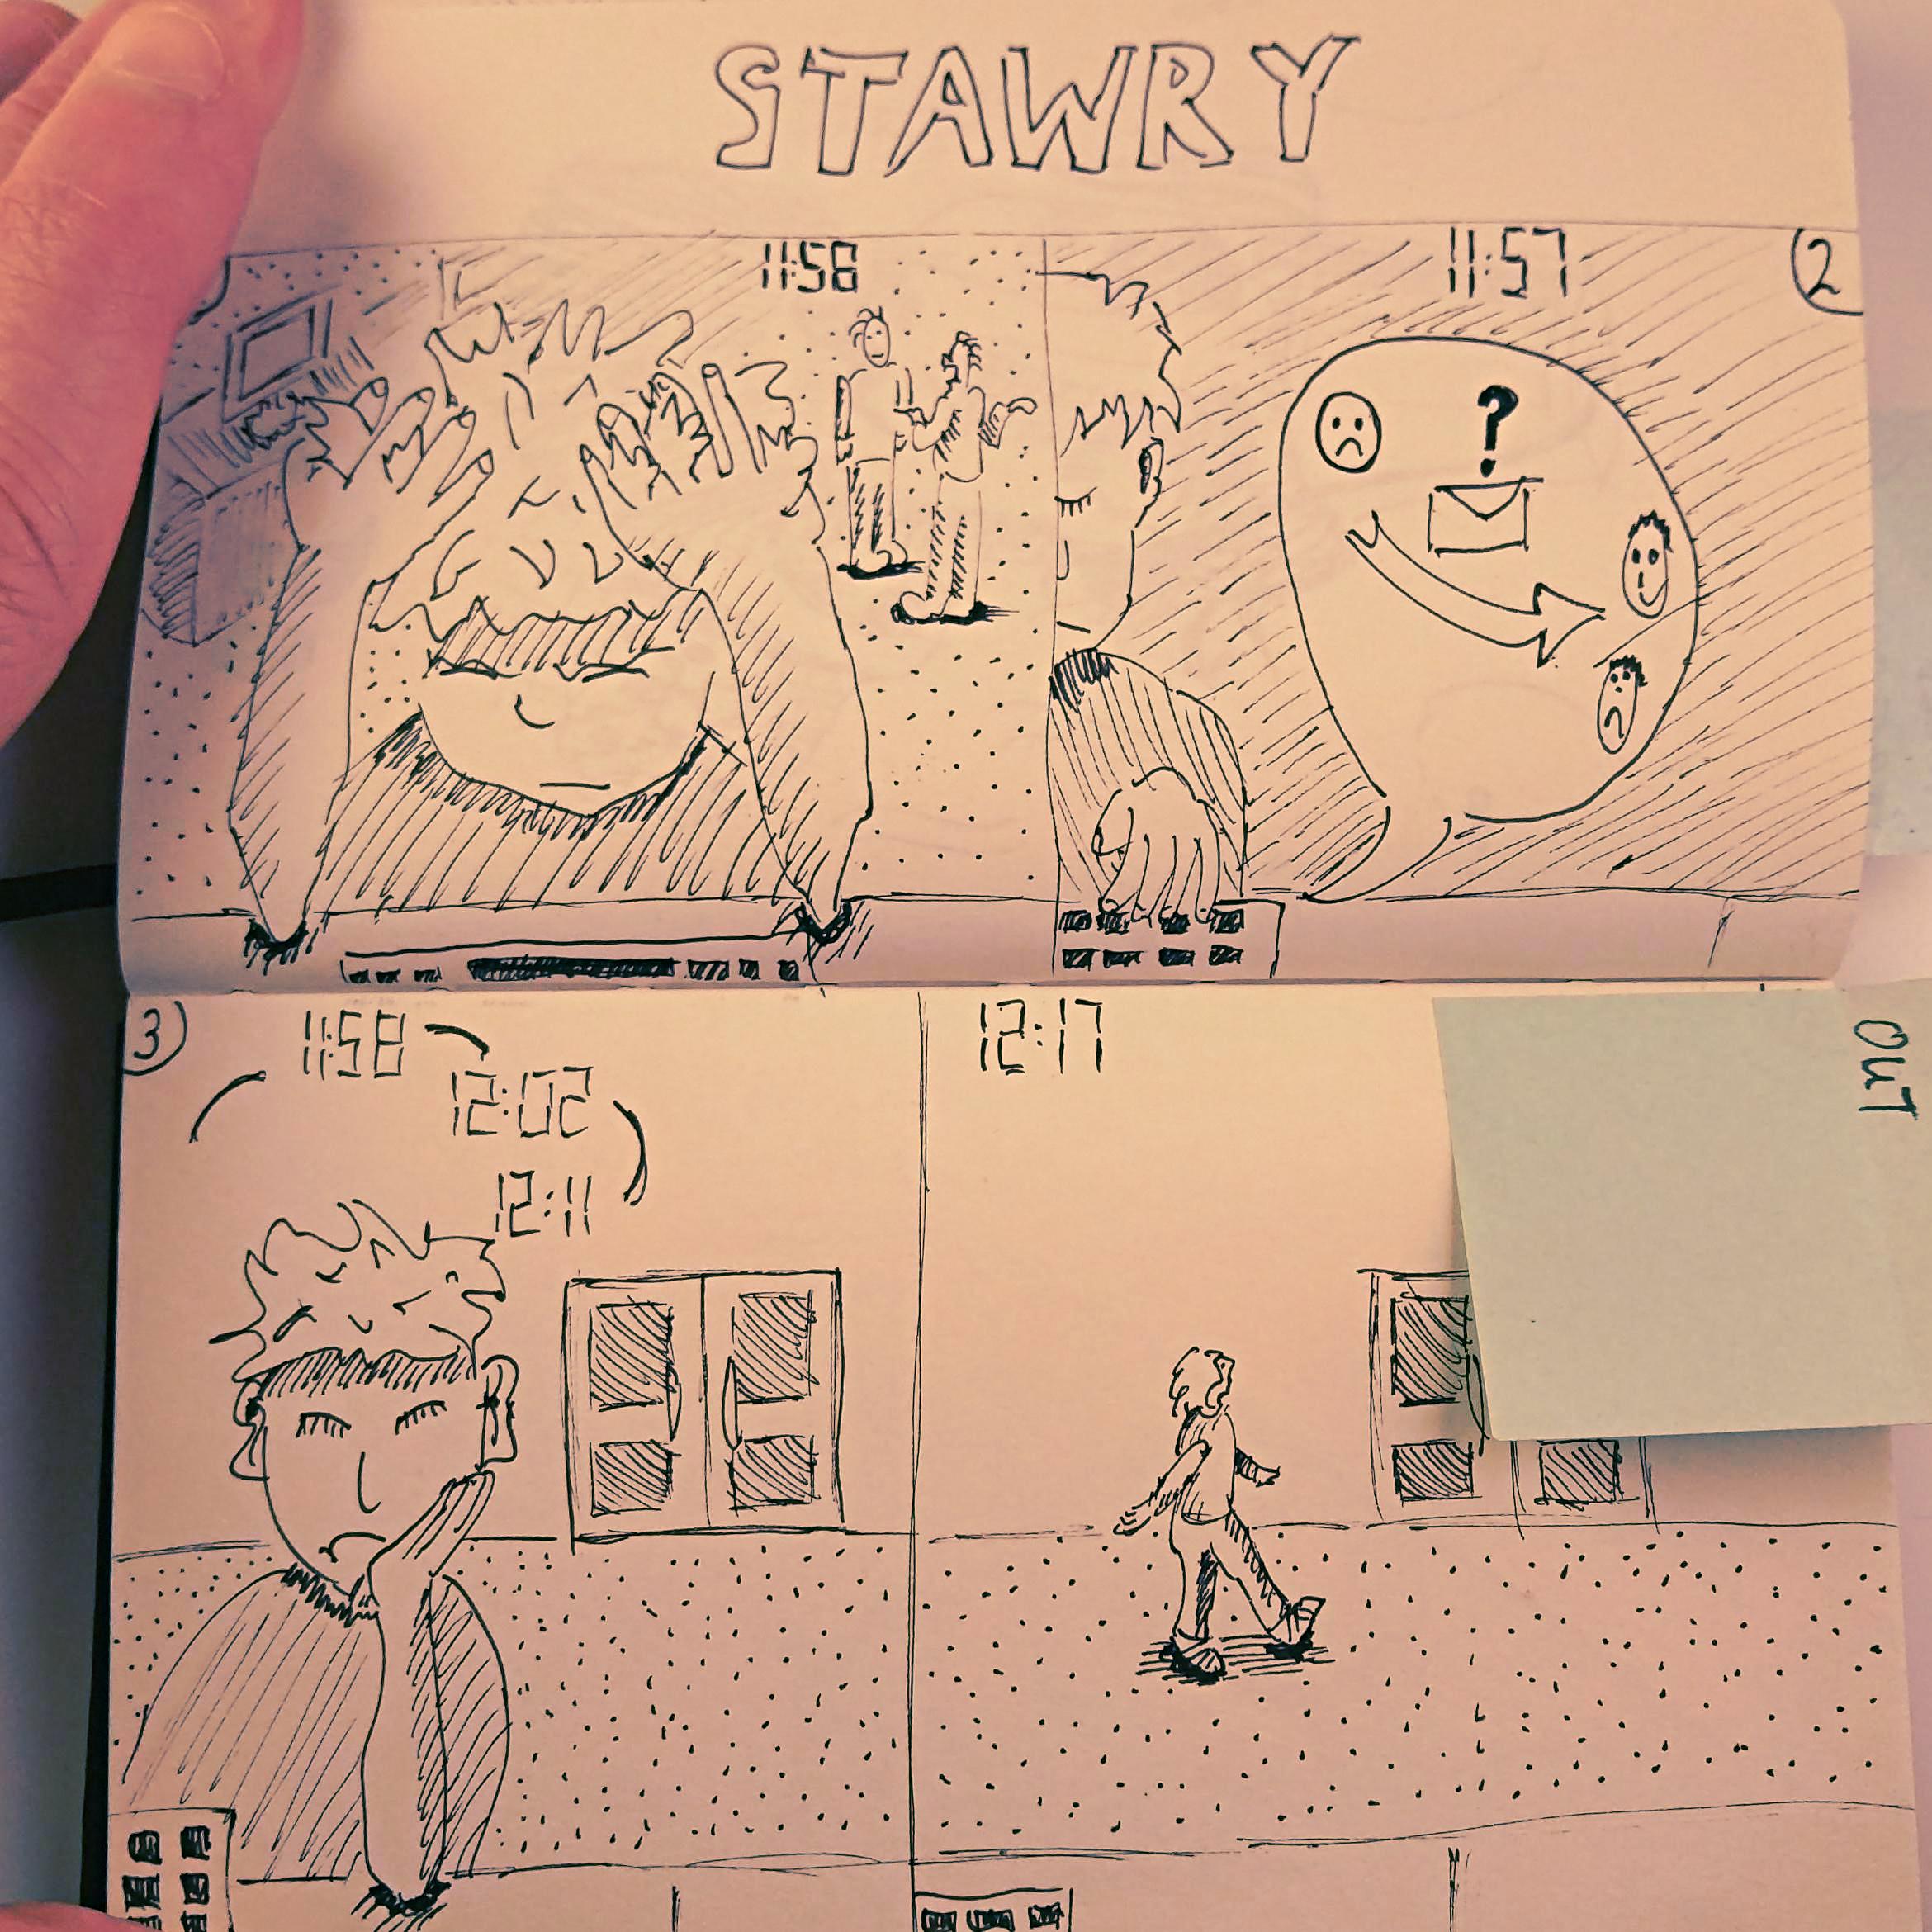 STAWRY
11:56
11:57
2
?
3
11:58
12:02
12:11
12:17
OUT